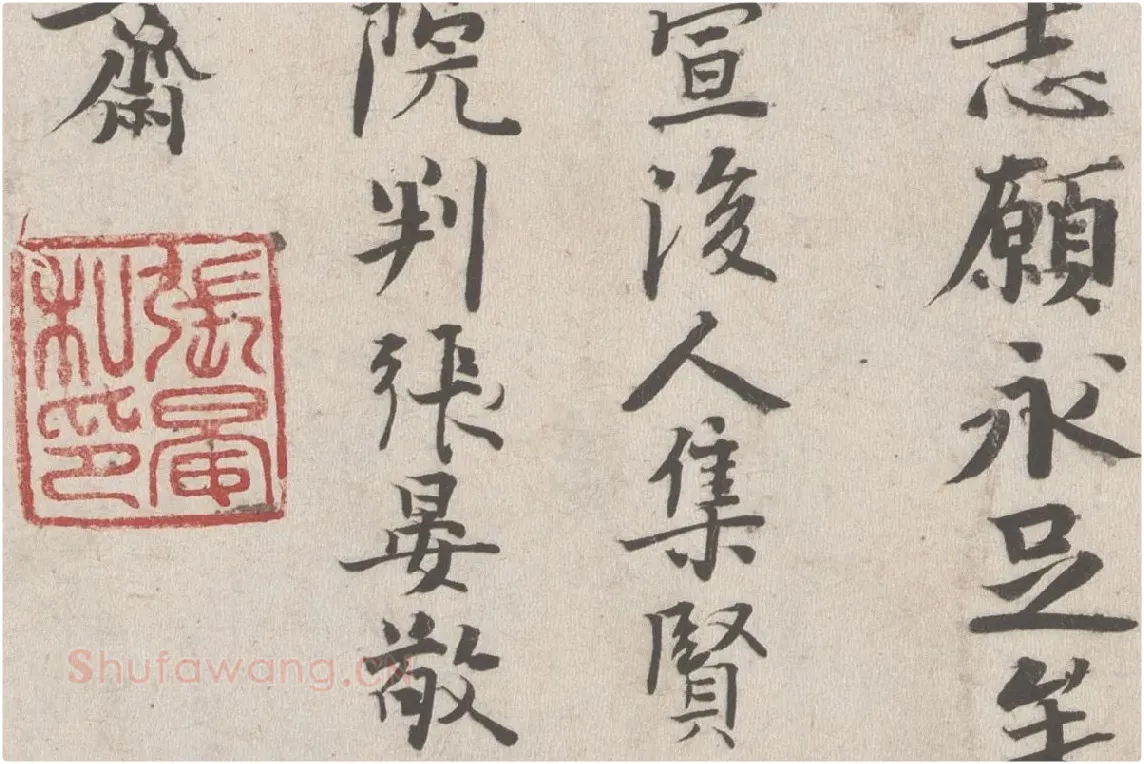 志願永足
宣後人集賢
院判張晏敬
齋
張晏私印
Shufawang.cn